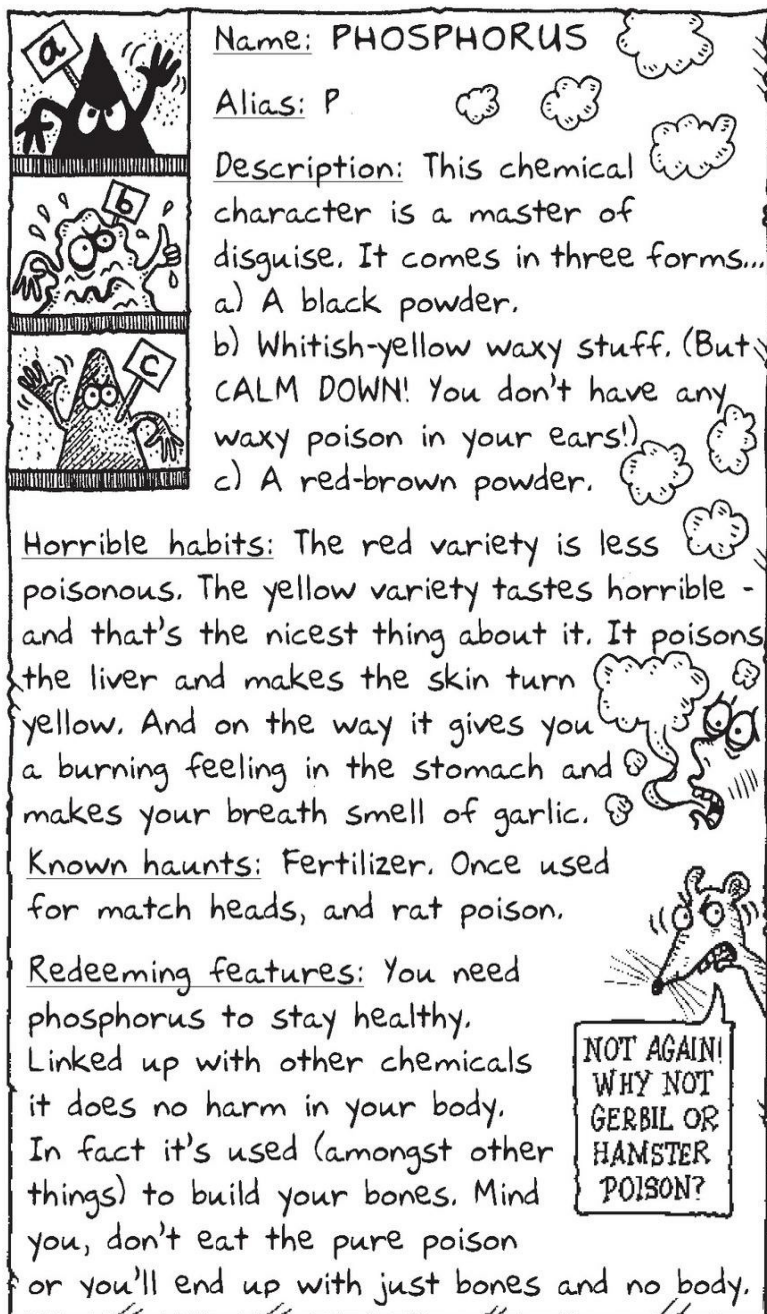 Name: PHOSPHORUS
Alias: P
Description: This chemical
character is a master of
disguise. It comes in three forms...
a) A black powder.
b) Whitish-yellow waxy stuff. (But
CALM DOWN! You don't have any
waxy poison in your ears!)
c) A red-brown powder.
a
b
c
Horrible habits: The red variety is less
poisonous. The yellow variety tastes horrible -
and that's the nicest thing about it. It poisons
the liver and makes the skin turn
yellow. And on the way it gives you
a burning feeling in the stomach and
makes your breath smell of garlic.
Known haunts: Fertilizer. Once used
for match heads, and rat poison.
Redeeming features: You need
phosphorus to stay healthy.
Linked up with other chemicals
it does no harm in your body.
In fact it's used (amongst other
things) to build your bones. Mind
you, don't eat the pure poison
or you'll end up with just bones and no body.
NOT AGAIN!
WHY NOT
GERBIL OR
HAMSTER
POISON?